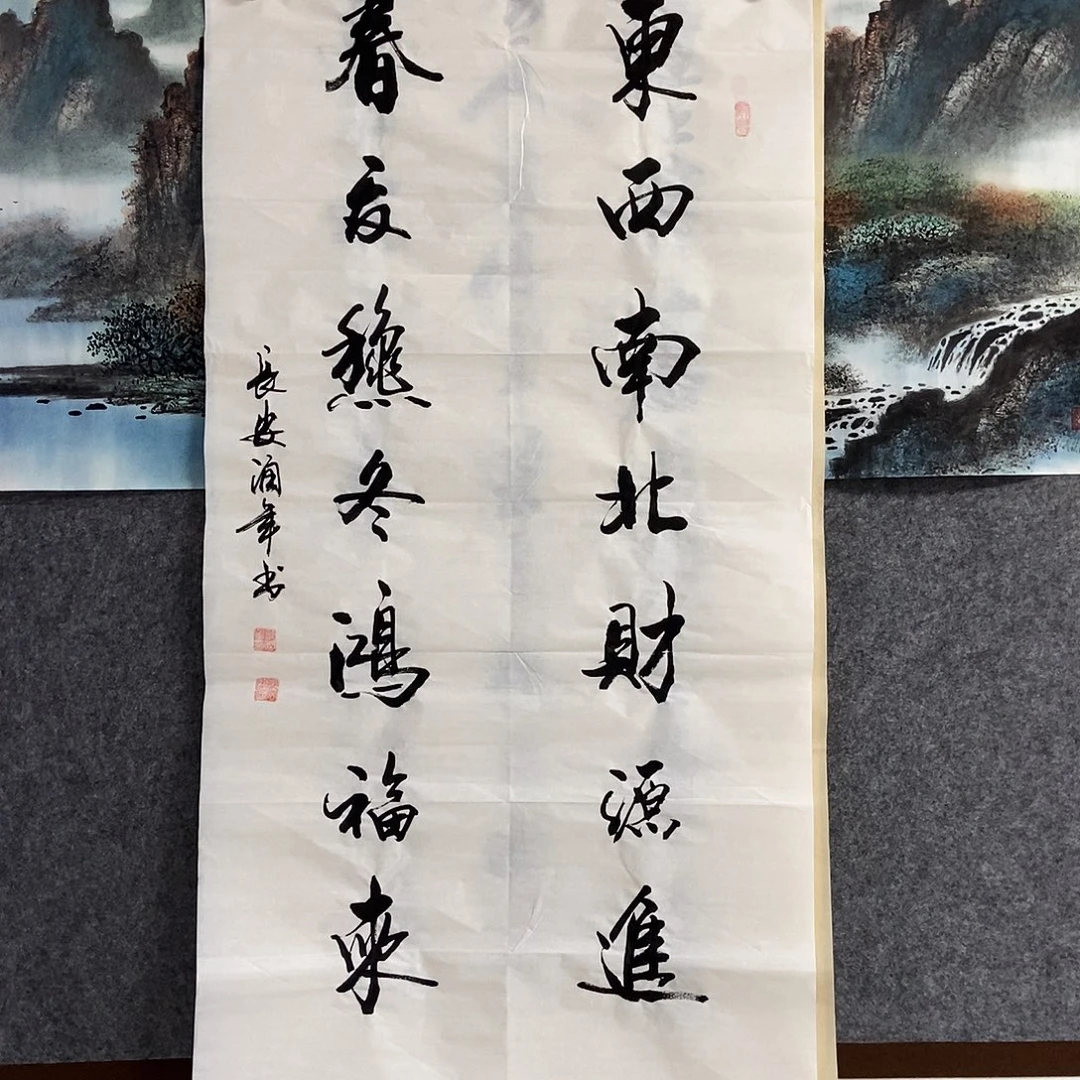 東西南北財源進
春夏龝冬鴻福來
長安酒年书